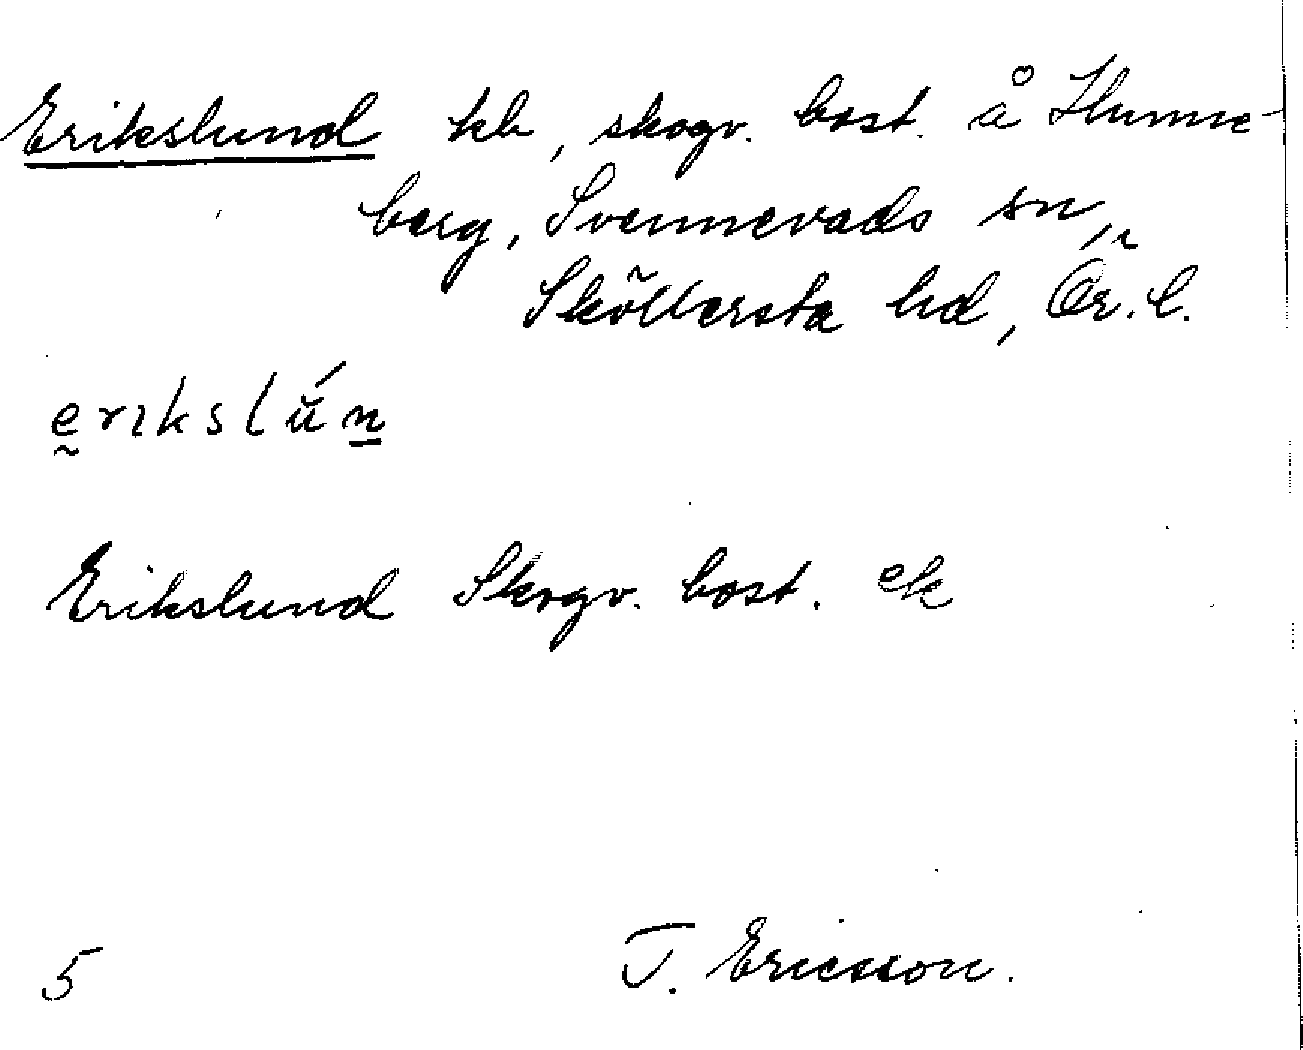 Erikslund hb, skogv. bost. å Hunne-
berg, Svennevads sn,
Sköllersta hd, Ör. l.
erikslún
Erikslund Skogv. bost. ek
5 T. Ericsson.